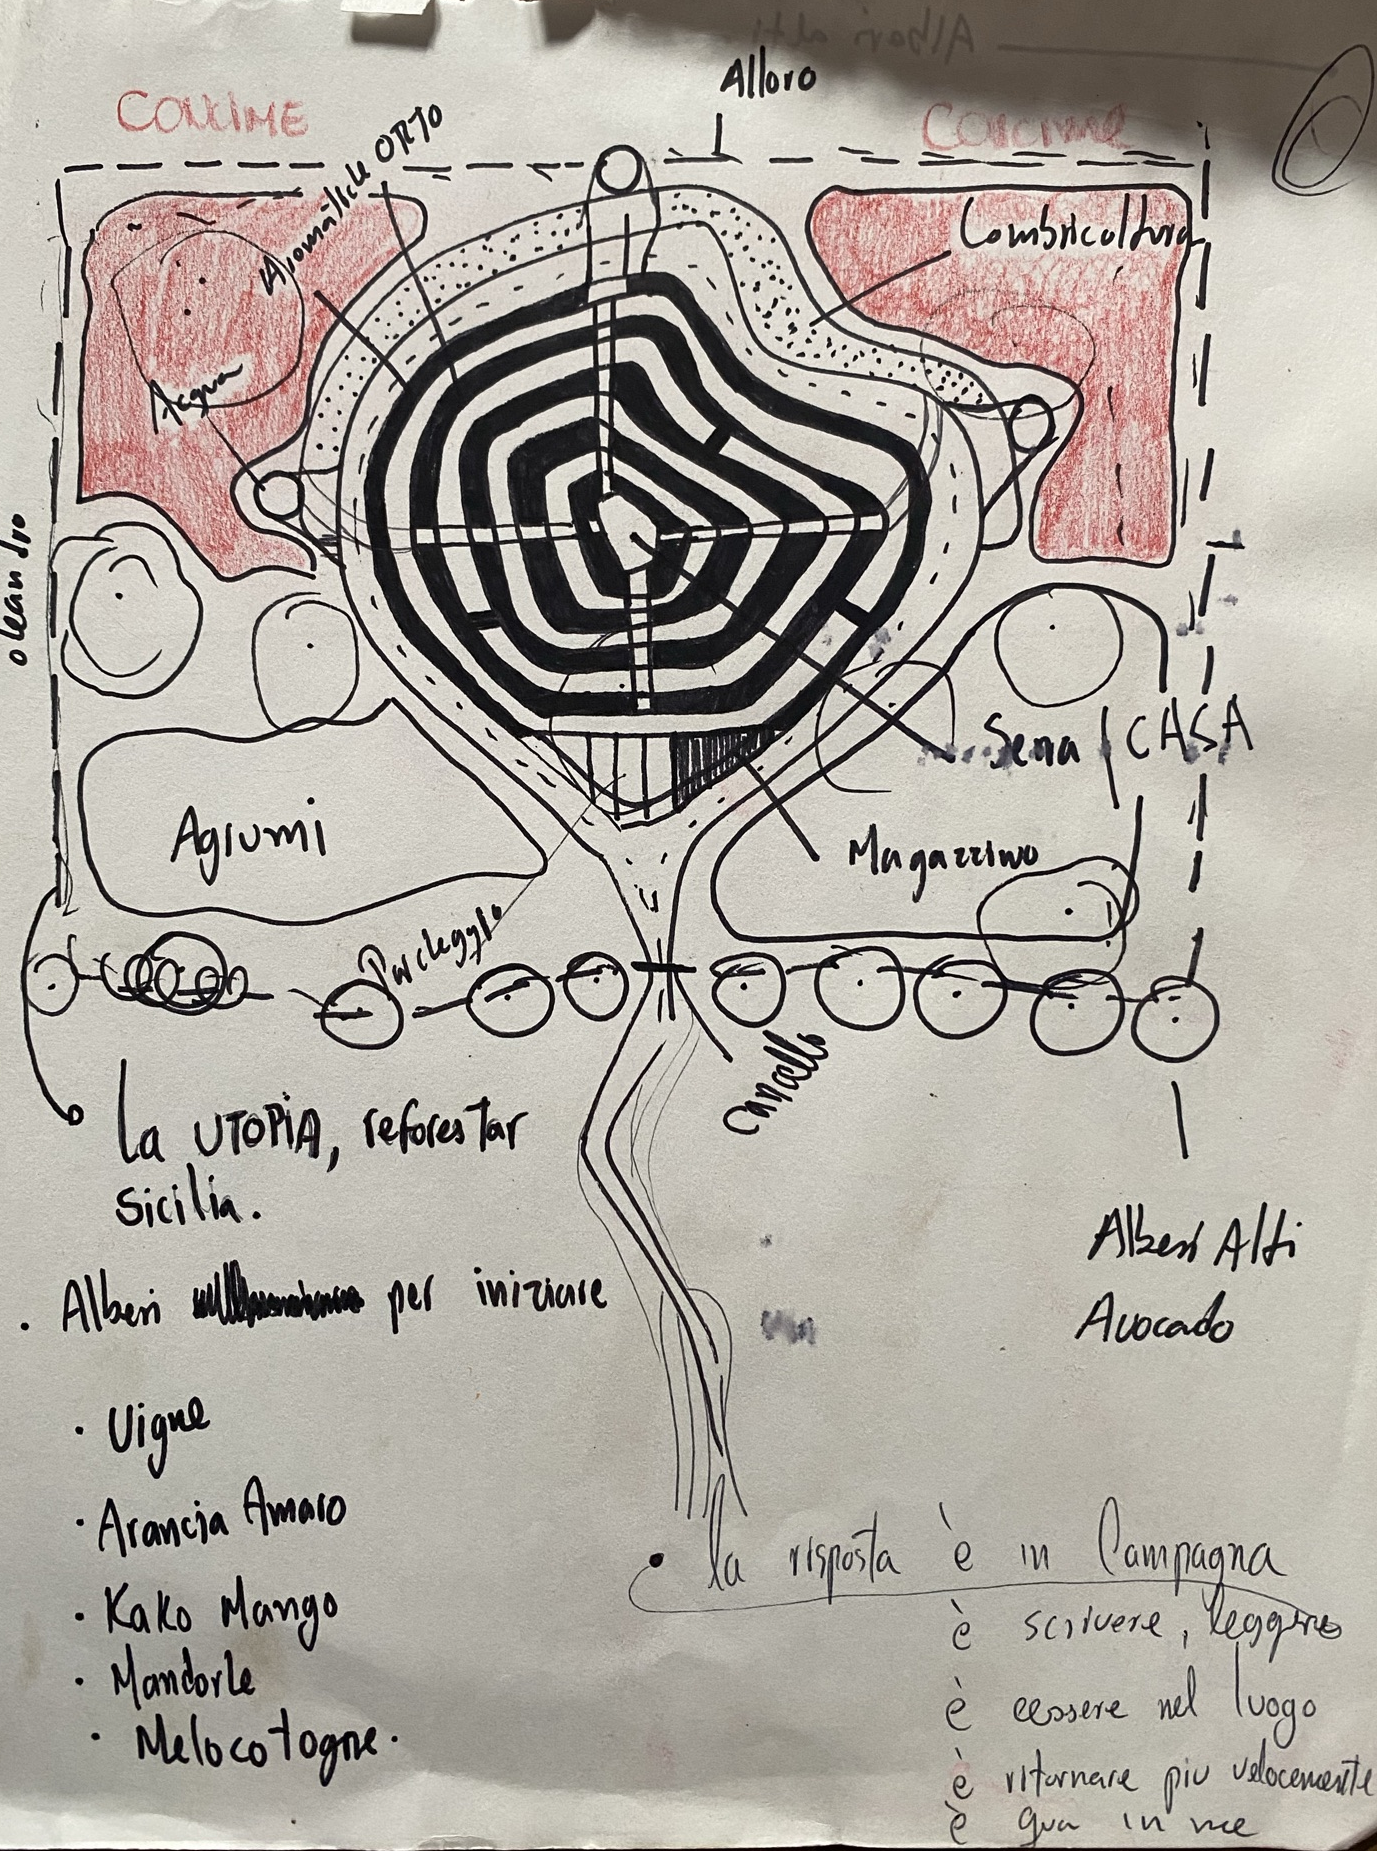 Alberi alti
Alloro
CONCIME
CONCIME
Aromatiche ORTO
Lombricoltura
Acqua
oleandro
Serra
CASA
Agrumi
Magazzino
Parcheggio
Cancello
La UTOPIA, reforestar
Sicilia.
Alberi Alti
Avocado
. Alberi per iniziare
· Vigne
· Arancia Amaro
· Kako Mango
· Mandorle
· Melocotogne.
la risposta è in Campagna
è scrivere, leggere
è essere nel luogo
è ritornare piu velocemente
è qua in me